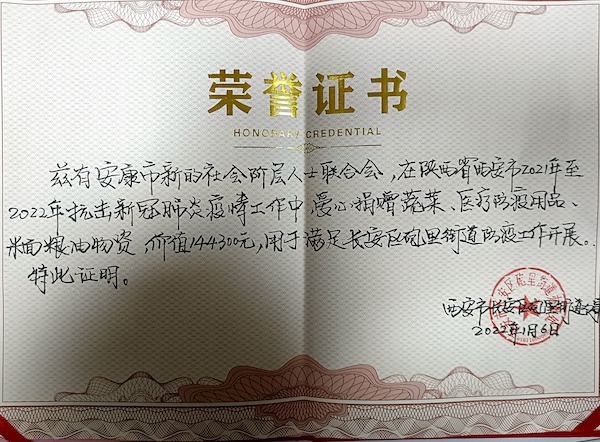 荣誉证书
HONORARY CREDENTIAL
兹有安康市新的社会阶层人士联合会，在陕西省西安市2021年至
2022年抗击新冠肺炎疫情工作中爱心捐赠蔬菜、医疗防疫用品、
米面粮油物资，价值144300元，用于满足长安区砲里街道防疫工作开展。
特此证明。
西安市长安区砲里街道办事
2022年1月6日